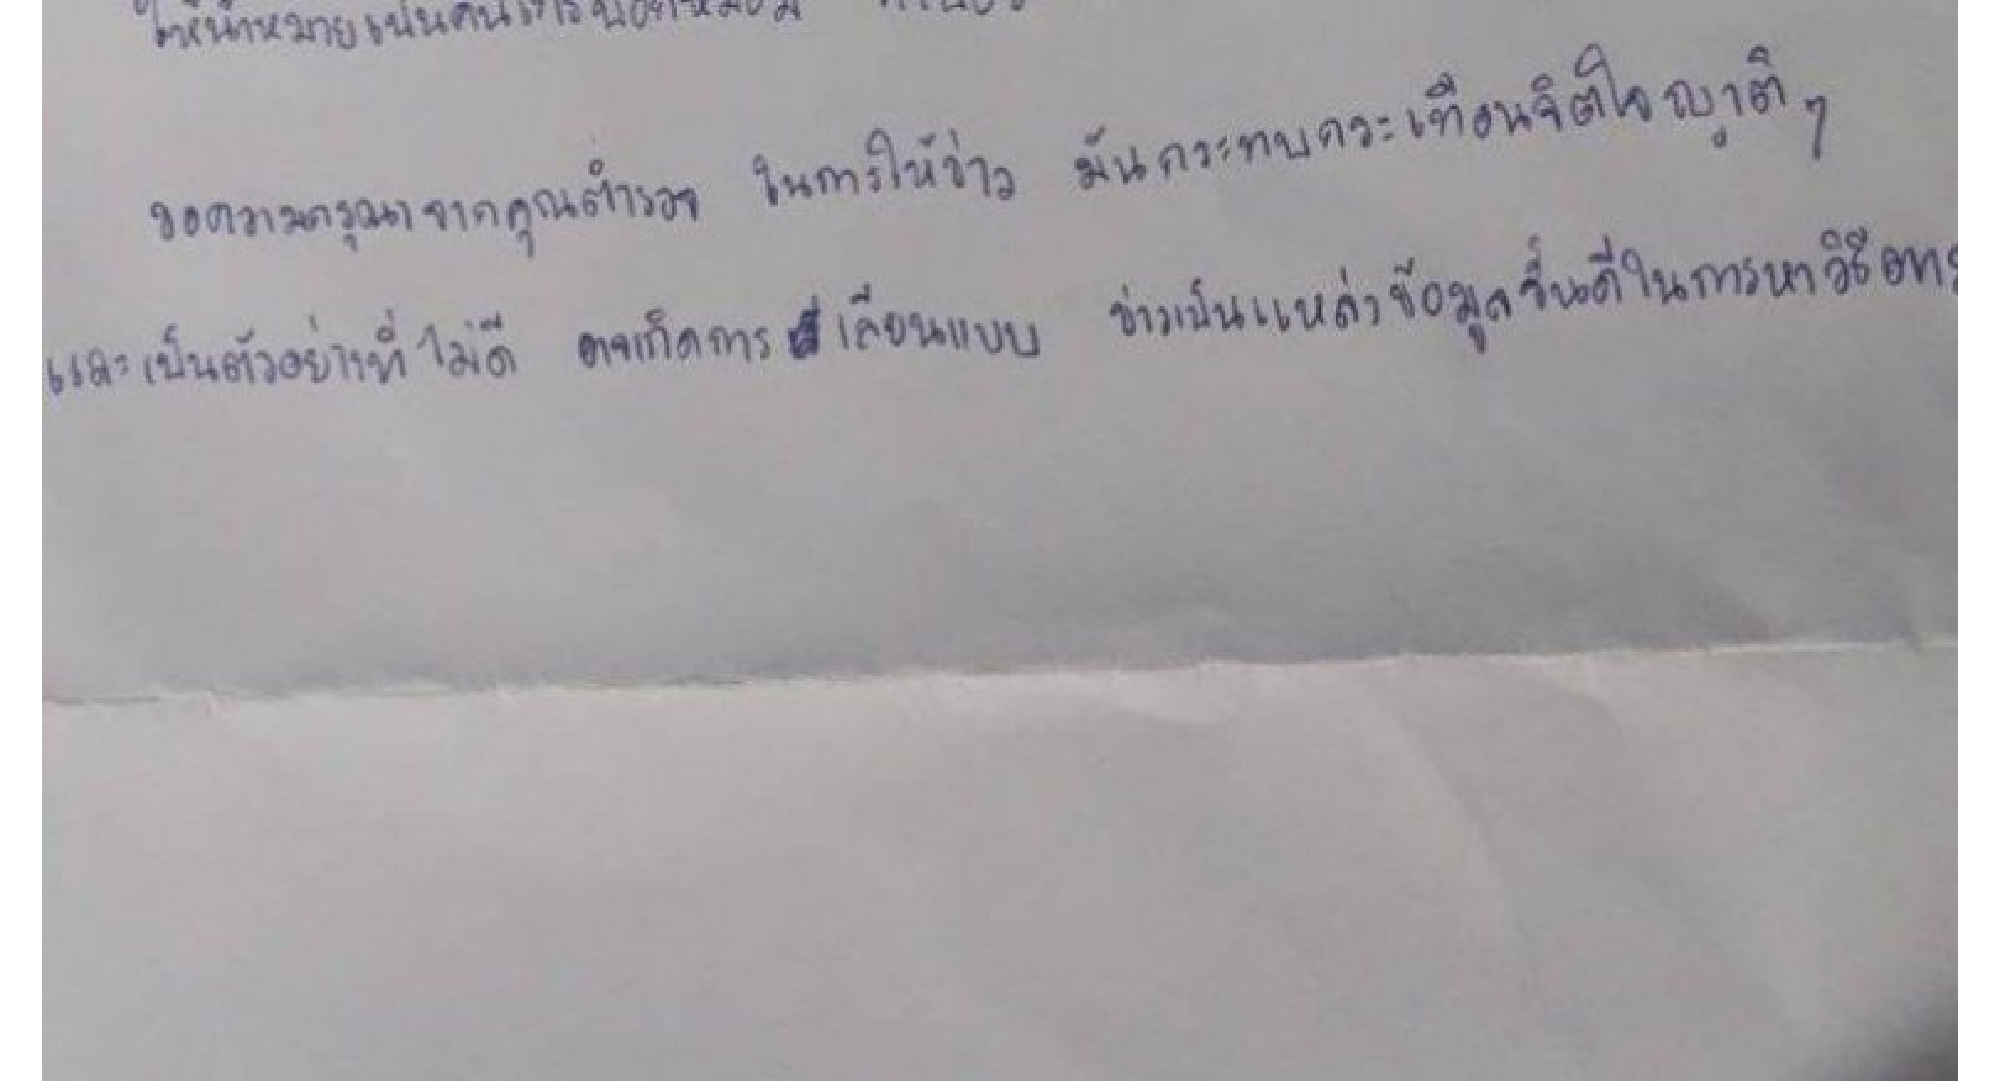 ให้น้าหมายเป็นคน
ขอความกรุณาจากคุณตำรวจ ในการให้ข่าว มันกระทบกระเทือนจิตใจญาติๆ
และเป็นตัวอย่างที่ไม่ดี อาจเกิดการ เลียนแบบ ข่าวเป็นแหล่งข้อมูลชั้นดีในการหาวิธี